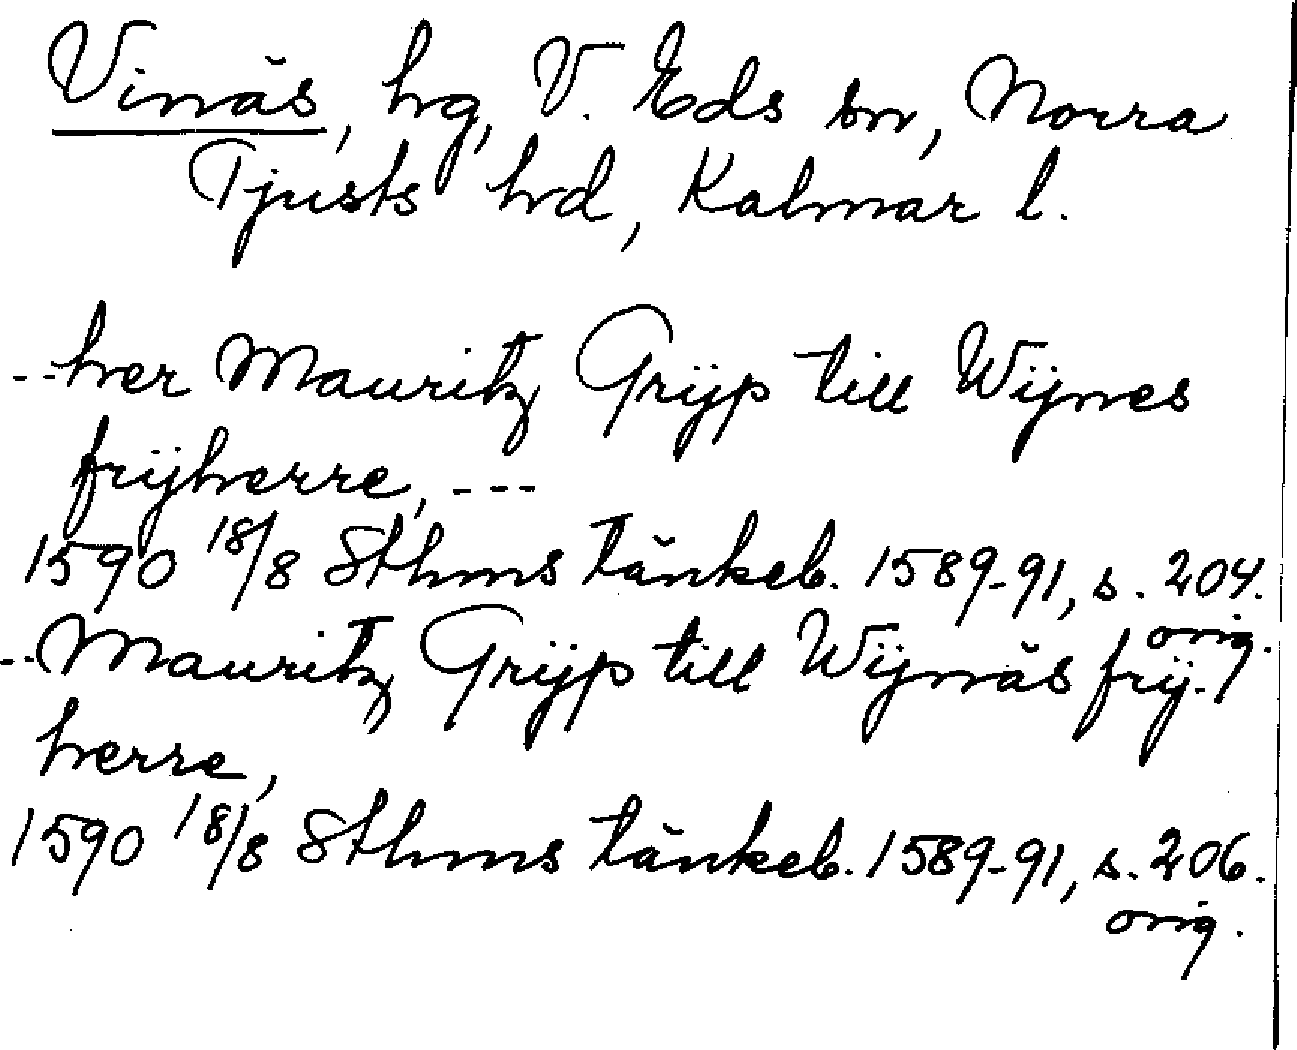 Vinäs, hg, V. Eds sn, Norra
Tjusts hd, Kalmar l.
--her Mauritz Grijp till Wijnes
frijherre, ---
1590 18/8 Sthms tänkeb. 1589-91, s. 204.
orig.
--Mauritz Grijp till Wijnäs frij-
herre,
1590 18/8 Sthms tänkeb. 1589-91, s. 206.
orig.